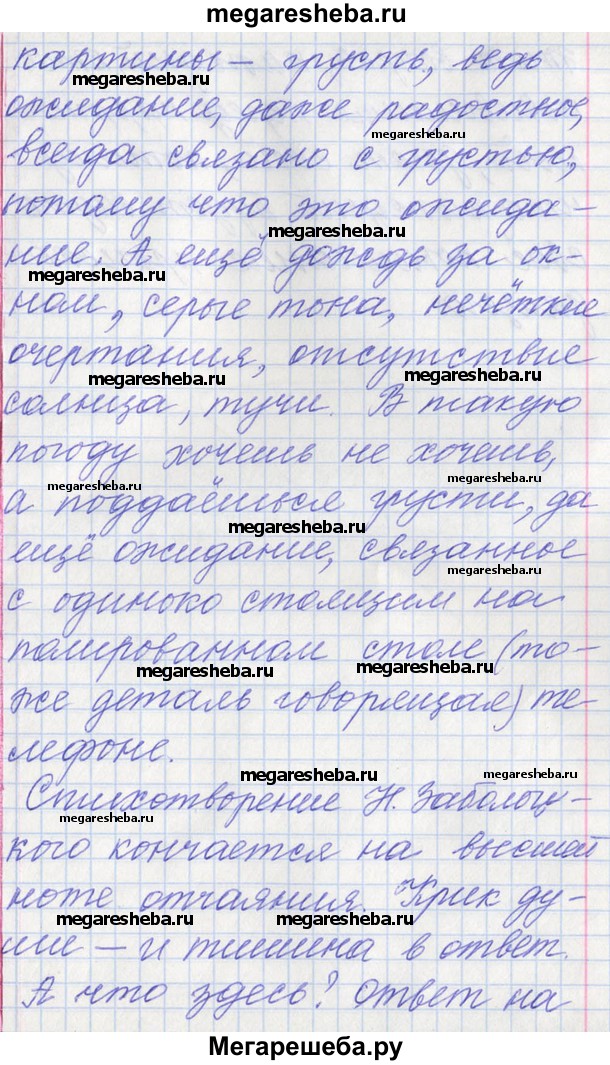 megaresheba.ru
картины — грусть, ведь
megaresheba.ru
ожидание, даже радостное,
megaresheba.ru
всегда связано с грустью,
потому что это ожида-
ние. А ещё дождь за ок-
megaresheba.ru
ном, серые тона, нечёткие
очертания, отсутствие
megaresheba.ru megaresheba.ru
солнца, тучи. В такую
погоду хочешь не хочешь,
megaresheba.ru megaresheba.ru
а поддаёшься грусти, да
megaresheba.ru
ещё ожидание, связанное
megaresheba.ru
с одиноко стоящим на
полированном столе (то-
megaresheba.ru megaresheba.ru
же деталь говорящая) те-
лефоне.
megaresheba.ru
Стихотворение Н. Заболоц-
megaresheba.ru
кого кончается на высшей
ноте отчаяния. Крик ду-
megaresheba.ru megaresheba.ru
ши — и тишина в ответ.
А что здесь? Ответ на
Мегарешеба.ру